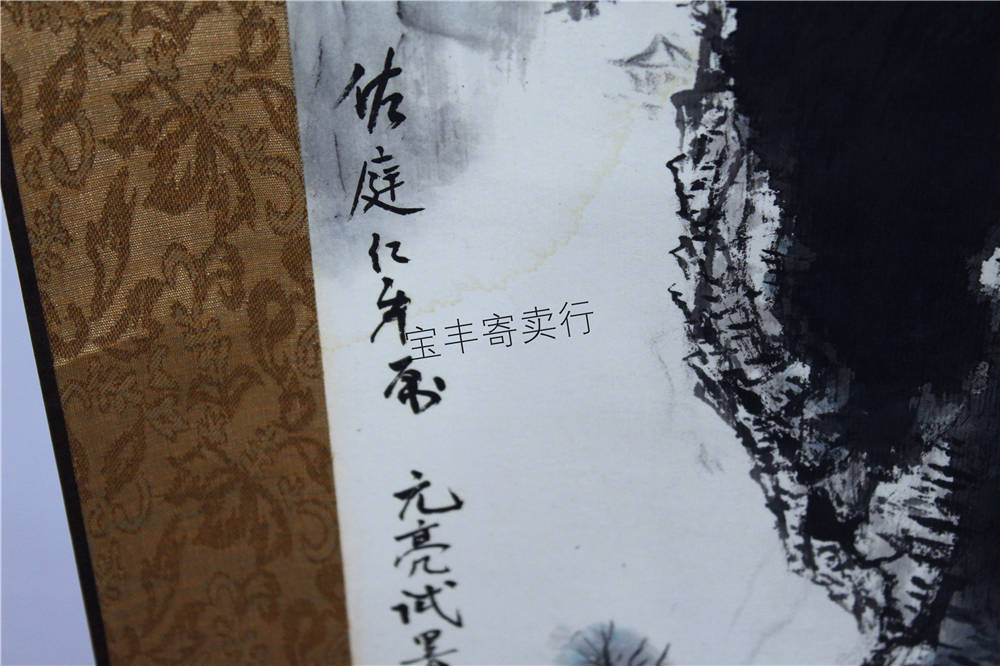 佑庭仁弟属 元亮试墨
宝丰寄卖行